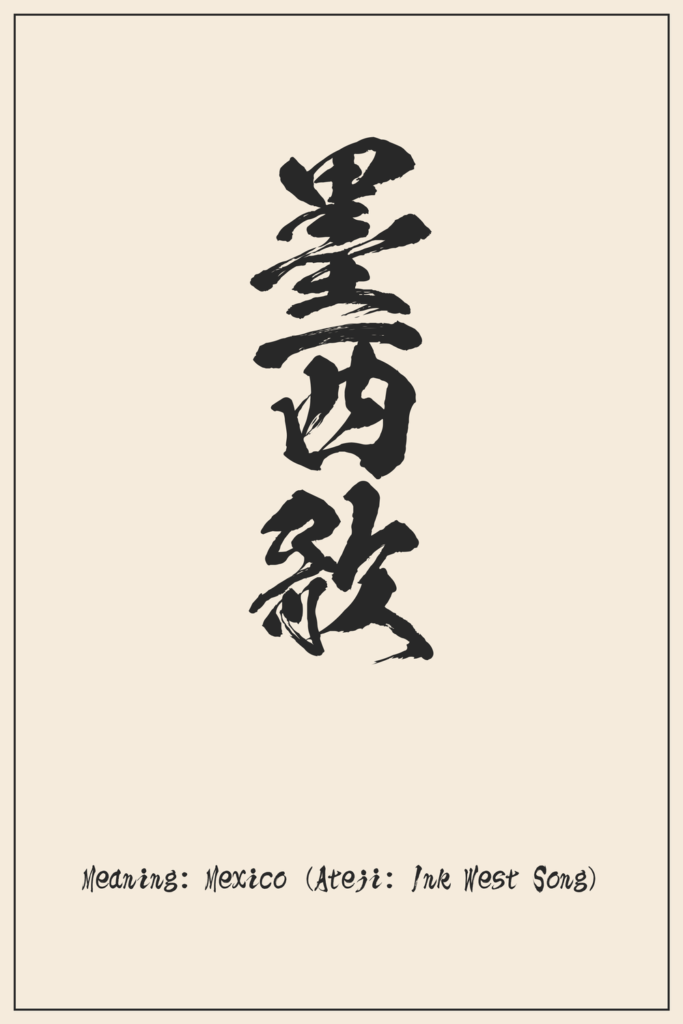 墨西歌
Meaning: Mexico (Ateji: Ink West Song)